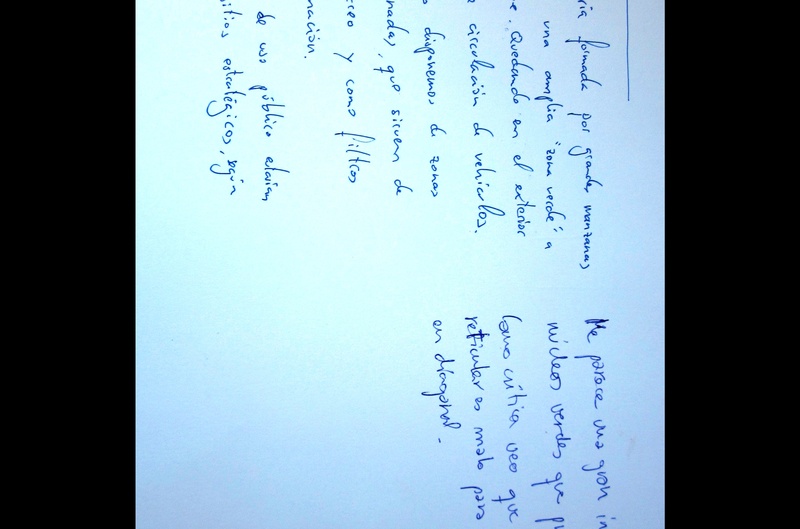 ría formada por grandes manzanas
una amplia "zona verde" a
e. Quedando en el exterior
circulación de vehículos.
disponemos de zonas
nadas, que sirven de
reo y como filtros
nación.
de uso público estarían
sitios estratégicos, según
Me parece una gran in
núcleos verdes que pr
Como crítica veo que
reticular es malo para
en diagonal.